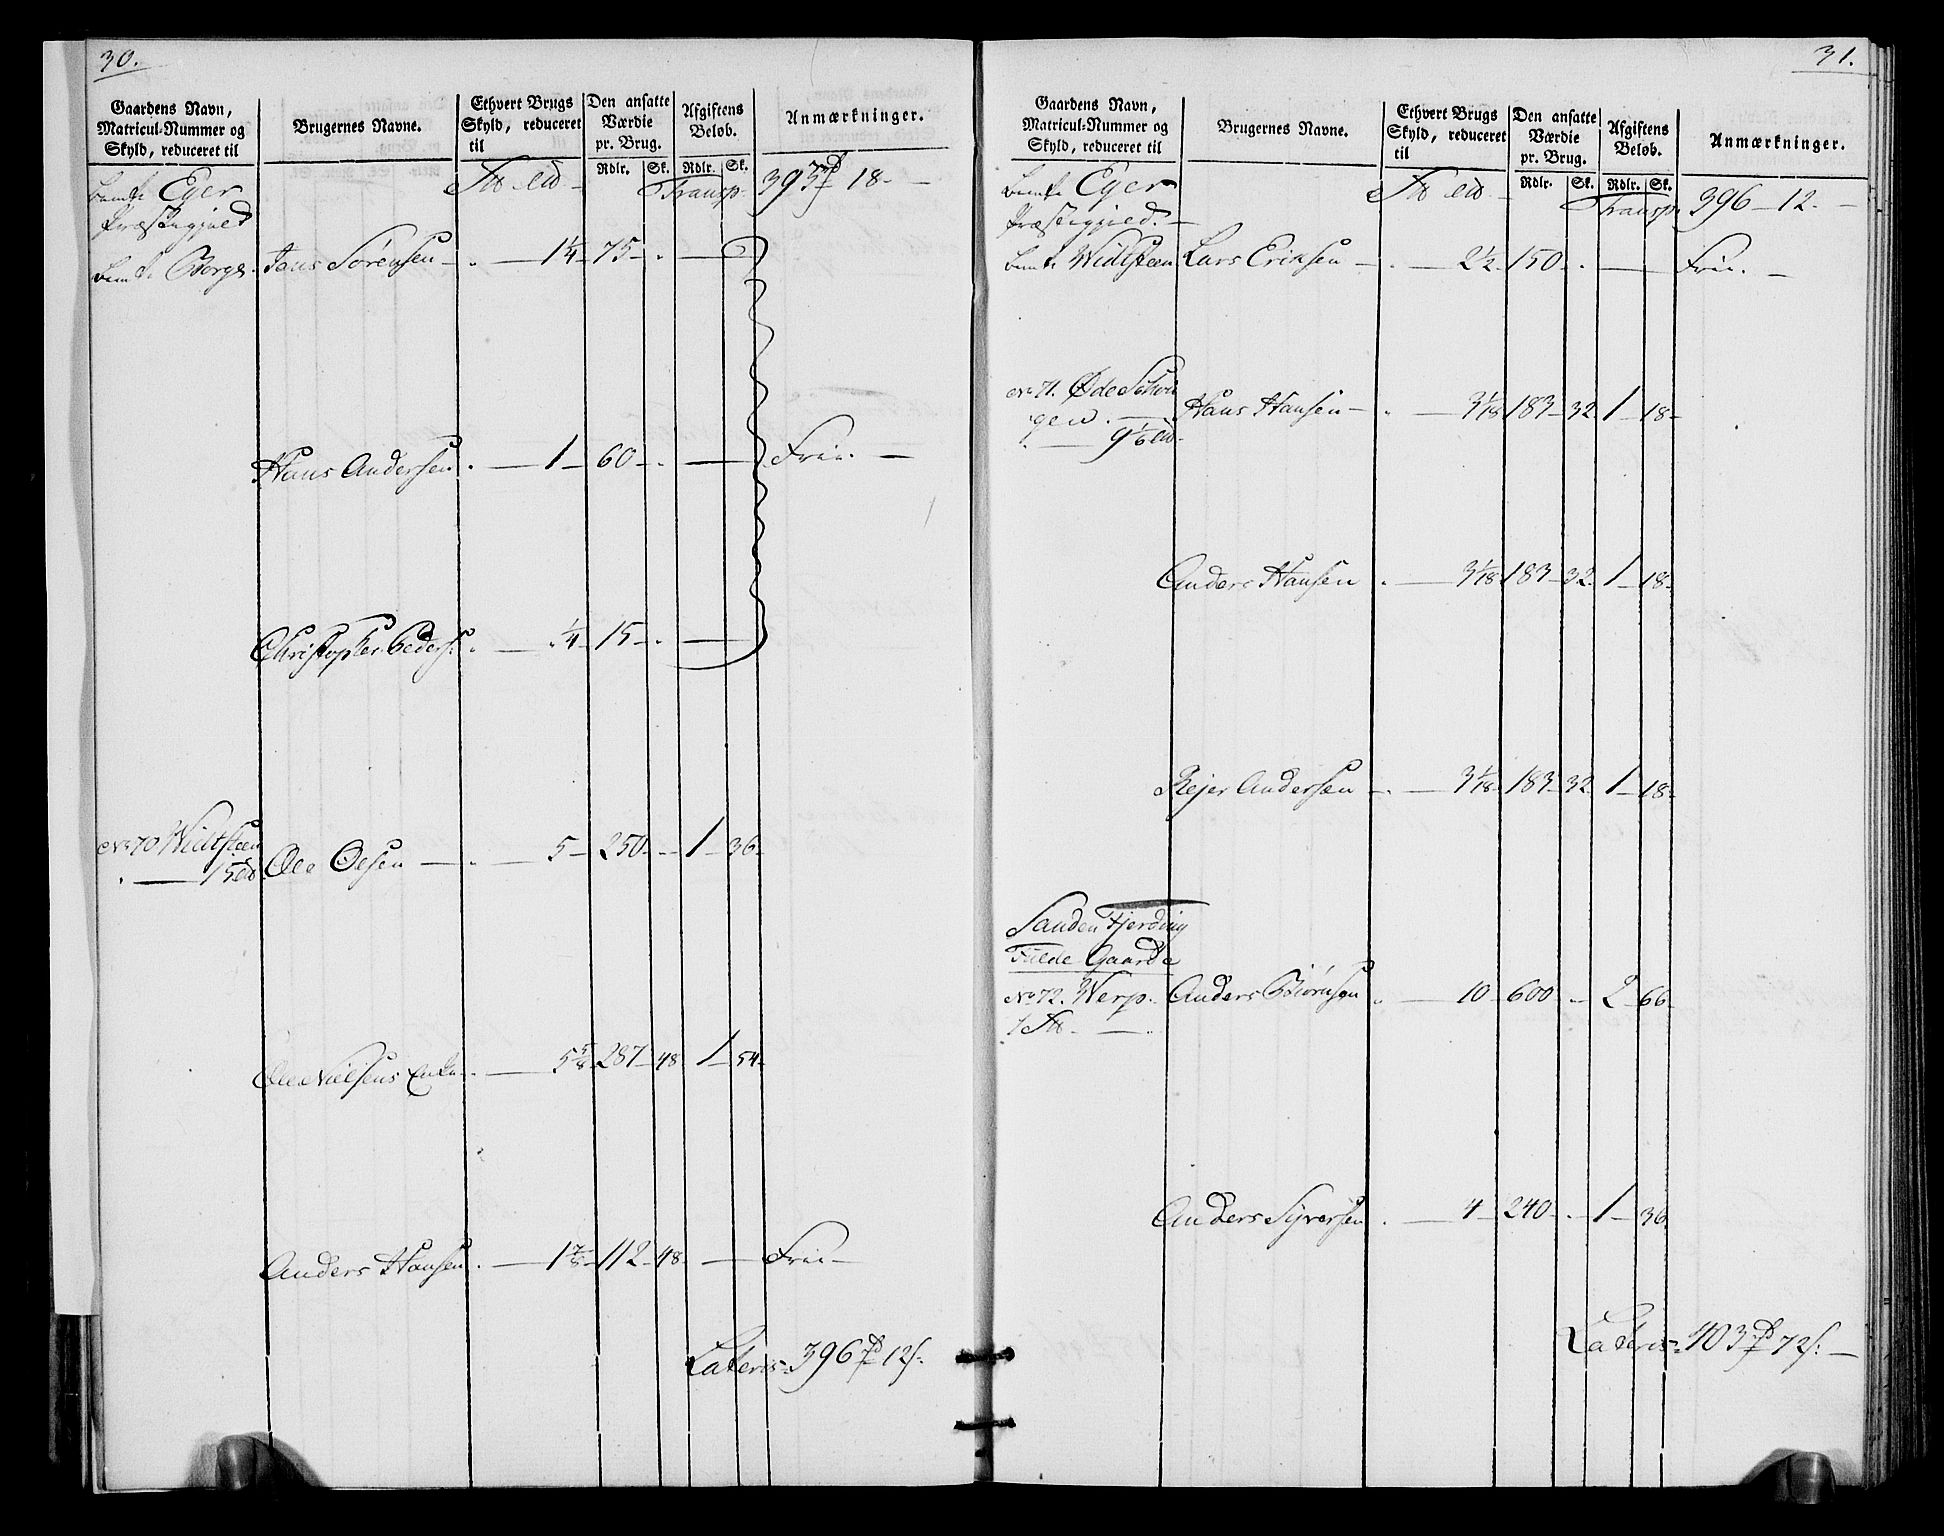 30.
Gaardens Navn, Matricul-Nummer og Skyld, reduceret til
Brugernes Navne.
Ethvert Brugs Skyld, reduceret til
Den ansatte Værdie pr. Brug.
Afgiftens Beløb.
Anmærkninger.
Rdlr. Sk. Rdlr. Sk.
Eger Transp. 393 18 -
Præstegjeld
Berge. Jens Sørensen - . — 1 1/4 75 - . —
Hans Andersen . — 1 - 60 - . — Frie. —
Christopher Peders: . — 1/4 15 - . —
No 70 Widtsteen
15 Ole Olsen — . — 5 - 250 - - 1 - 36 -
Ole Nielsens Enke . — 5 5/8 287 - 48 1 - 54 -
Anders Hansen . — 1 7/8 112 - 48 - — Frie —
Lateris = 396 12 s:
31.
Gaardens Navn, Matricul-Nummer og Skyld, reduceret til
Brugernes Navne.
Ethvert Brugs Skyld, reduceret til
Den ansatte Værdie pr. Brug.
Afgiftens Beløb.
Anmærkninger.
Rdlr. Sk. Rdlr. Sk.
Eger Transp. 396 - 12. -
Præstegjeld. —
Widtsteen Lars Eriksen - . — 2 1/2 150 . — Frie. —
No 71. Øde
gen. — Hans Hansen - . — 3 1/18 183 - 32 1 - 18 -
. — 9 1/6
Anders Hansen . — 3 1/18 183 - 32 1 - 18 -
Rejer Andersen - . — 3 1/18 183 - 32 1 - 18 -
Sanden Fjerding
Fulde Gaarde
No 72. Werp. Anders Biørnsen . — 10 - 600 - 2 - 66 -
1
Anders Syversen . — 4 - 240 - . - 1 - 36
Lateris = 403 72 s: —